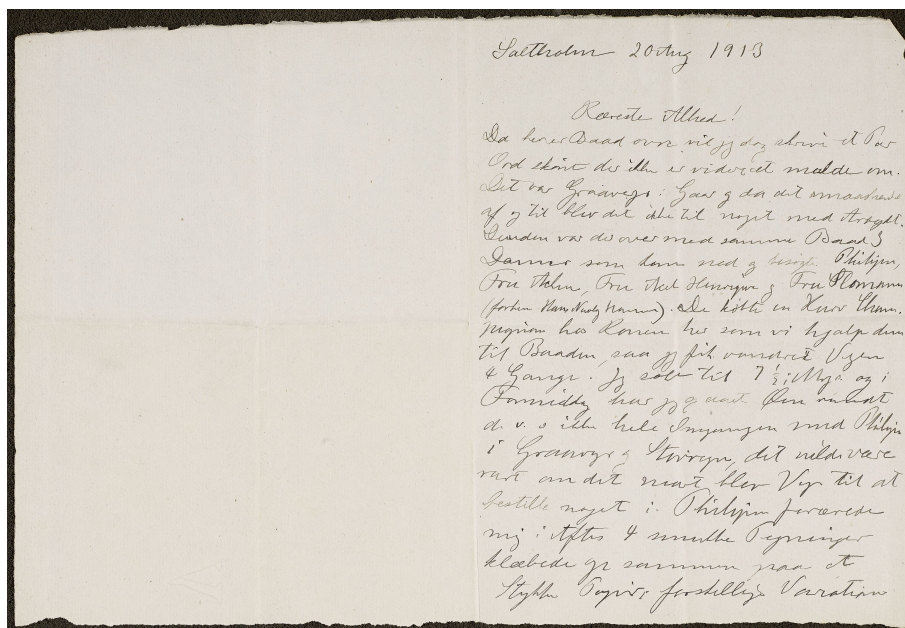 Saltholm 20 Aug 1913
Kæreste Alhed!
Da her er Baad over vil jeg dog skrive et Par
Ord skønt der ikke er videre at melde om.
Det var Graavejr i Gaar og da det smaaregnede
af og til blev det ikke til noget med Arbejdet.
Desuden var der over med samme Baad 3
Damer som kom ned og besøgte Philipsen,
Fru Fru Axel Henriques og Fru
(forhen Hans Nicolaj Hansen). De købte en Kurv Cham-
pignon hos Konen her som vi hjalp dem
til Baaden, saa jeg fik vandret Vejen
4 Gange. Jeg sov til 7 ½ i Morges og i
Formiddag har jeg gaaet Øen rundt
d. v. s ikke hele Omgangen med Philipsen
i Graavejr og Støvregn, det vilde være
rart om det snart blev Vejr til at
bestille noget i. Philipsen forærede
mig i Aftes 4 smukke Tegninger
klæbede op sammen paa et
Stykke Papir, forstillige Variation